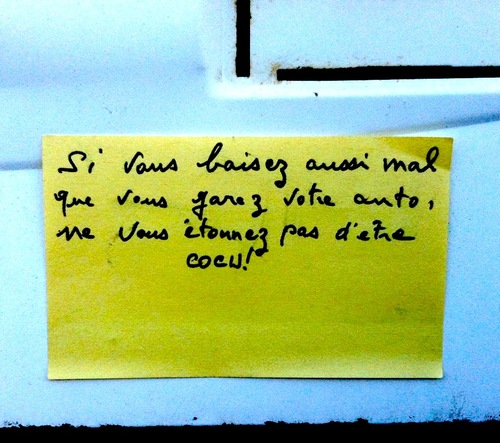 Si vous baisez aussi mal
que vous garez votre auto,
ne vous étonnez pas d'être
cocu!